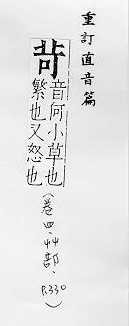 重訂直音篇
苛
音何小草也
繁也又怒也
（卷四、艸部、P.330）